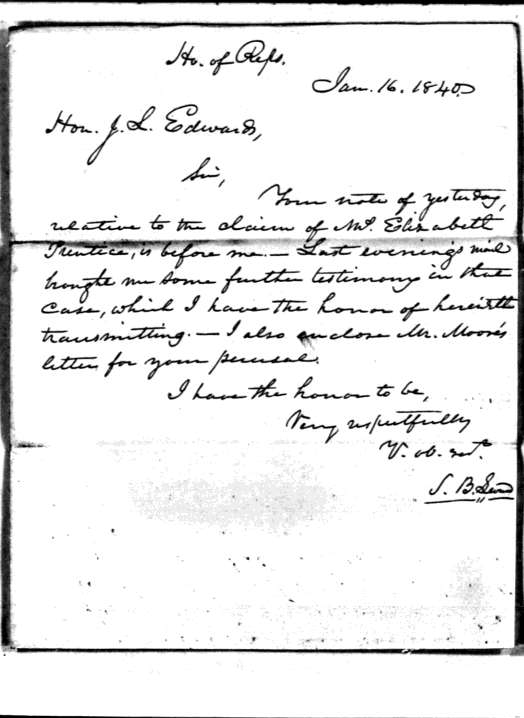 Ho. of Reps.
Jan. 16. 1840.
Hon. J. L. Edwards,
Sir,
Your note of yesterday,
relative to the claim of Mrs. Elizabeth
Prentice, is before me. — Last evenings mail
brought me some further testimony in that
case, which I have the honor of herewith
transmitting. — I also enclose Mr. Moore's
letter for your perusal.
I have the honor to be,
Very respectfully
Y. ob. sert.
S. B.